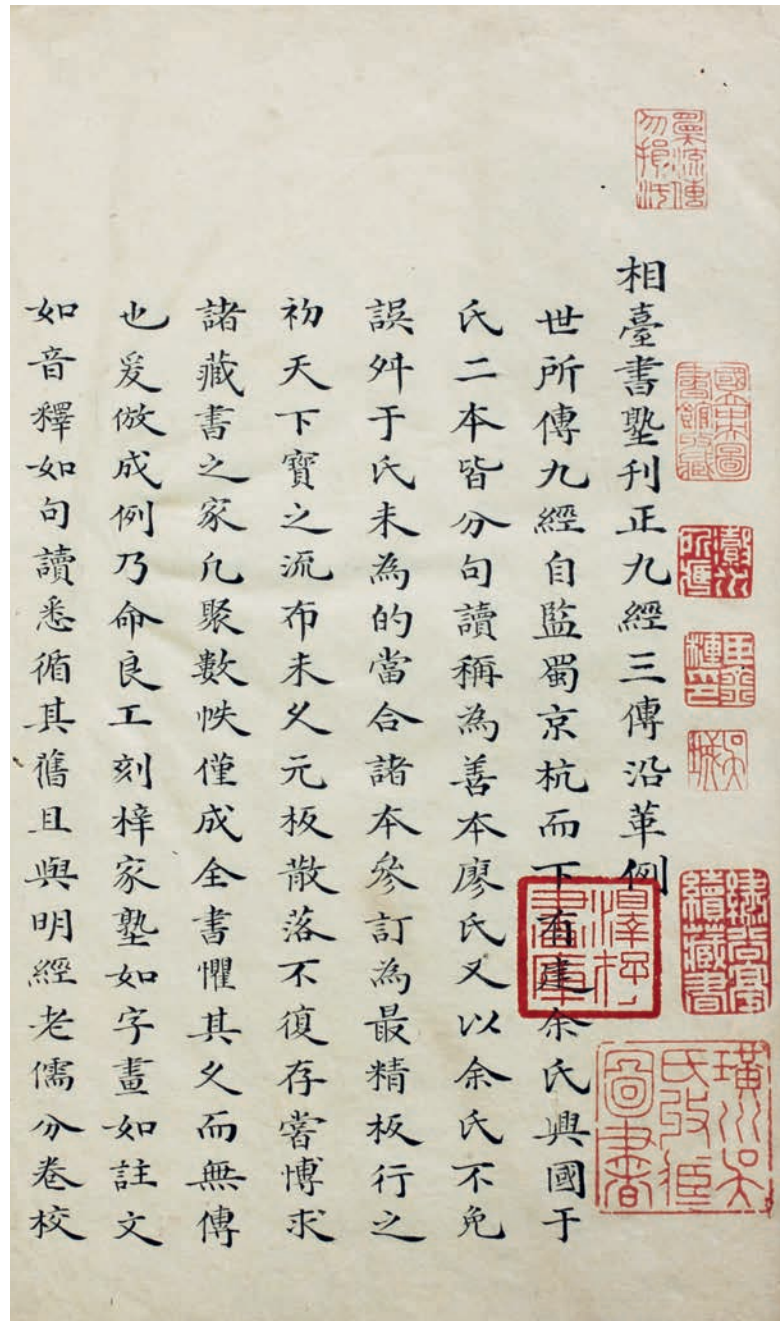 願流傳勿損污
吳城
繡谷亭續藏書
璜川吳氏收藏圖書
相臺書塾刊正九經三傳沿革例
世所傳九經自監蜀京杭而下有建余氏興國于
澤存書庫
氏二本皆分句讀稱為善本廖氏又以余氏不免
誤舛于氏未為的當合諸本參訂為最精板行之
初天下寶之流布未久元板散落不復存嘗博求
諸藏書之家凡聚數帙僅成全書懼其久而無傳
也爰倣成例乃命良工刻梓家塾如字畫如註文
如音釋如句讀悉循其舊且與明經老儒分卷校